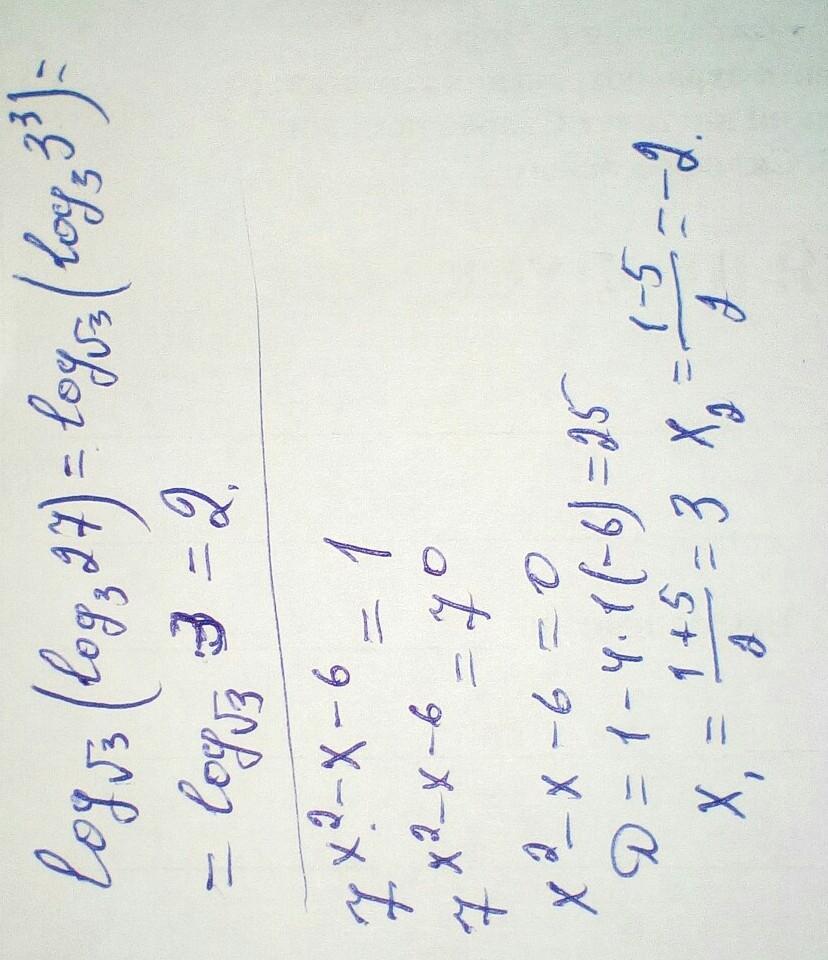 log√3 (log₃27) = log√3 (log₃3³) =
= log√3 3 = 2.
7^(x²-x-6) = 1
7^(x²-x-6) = 7⁰
x²-x-6 = 0
D = 1-4·1(-6) = 25
x₁ = (1+5)/2 = 3 x₂ = (1-5)/2 = -2.